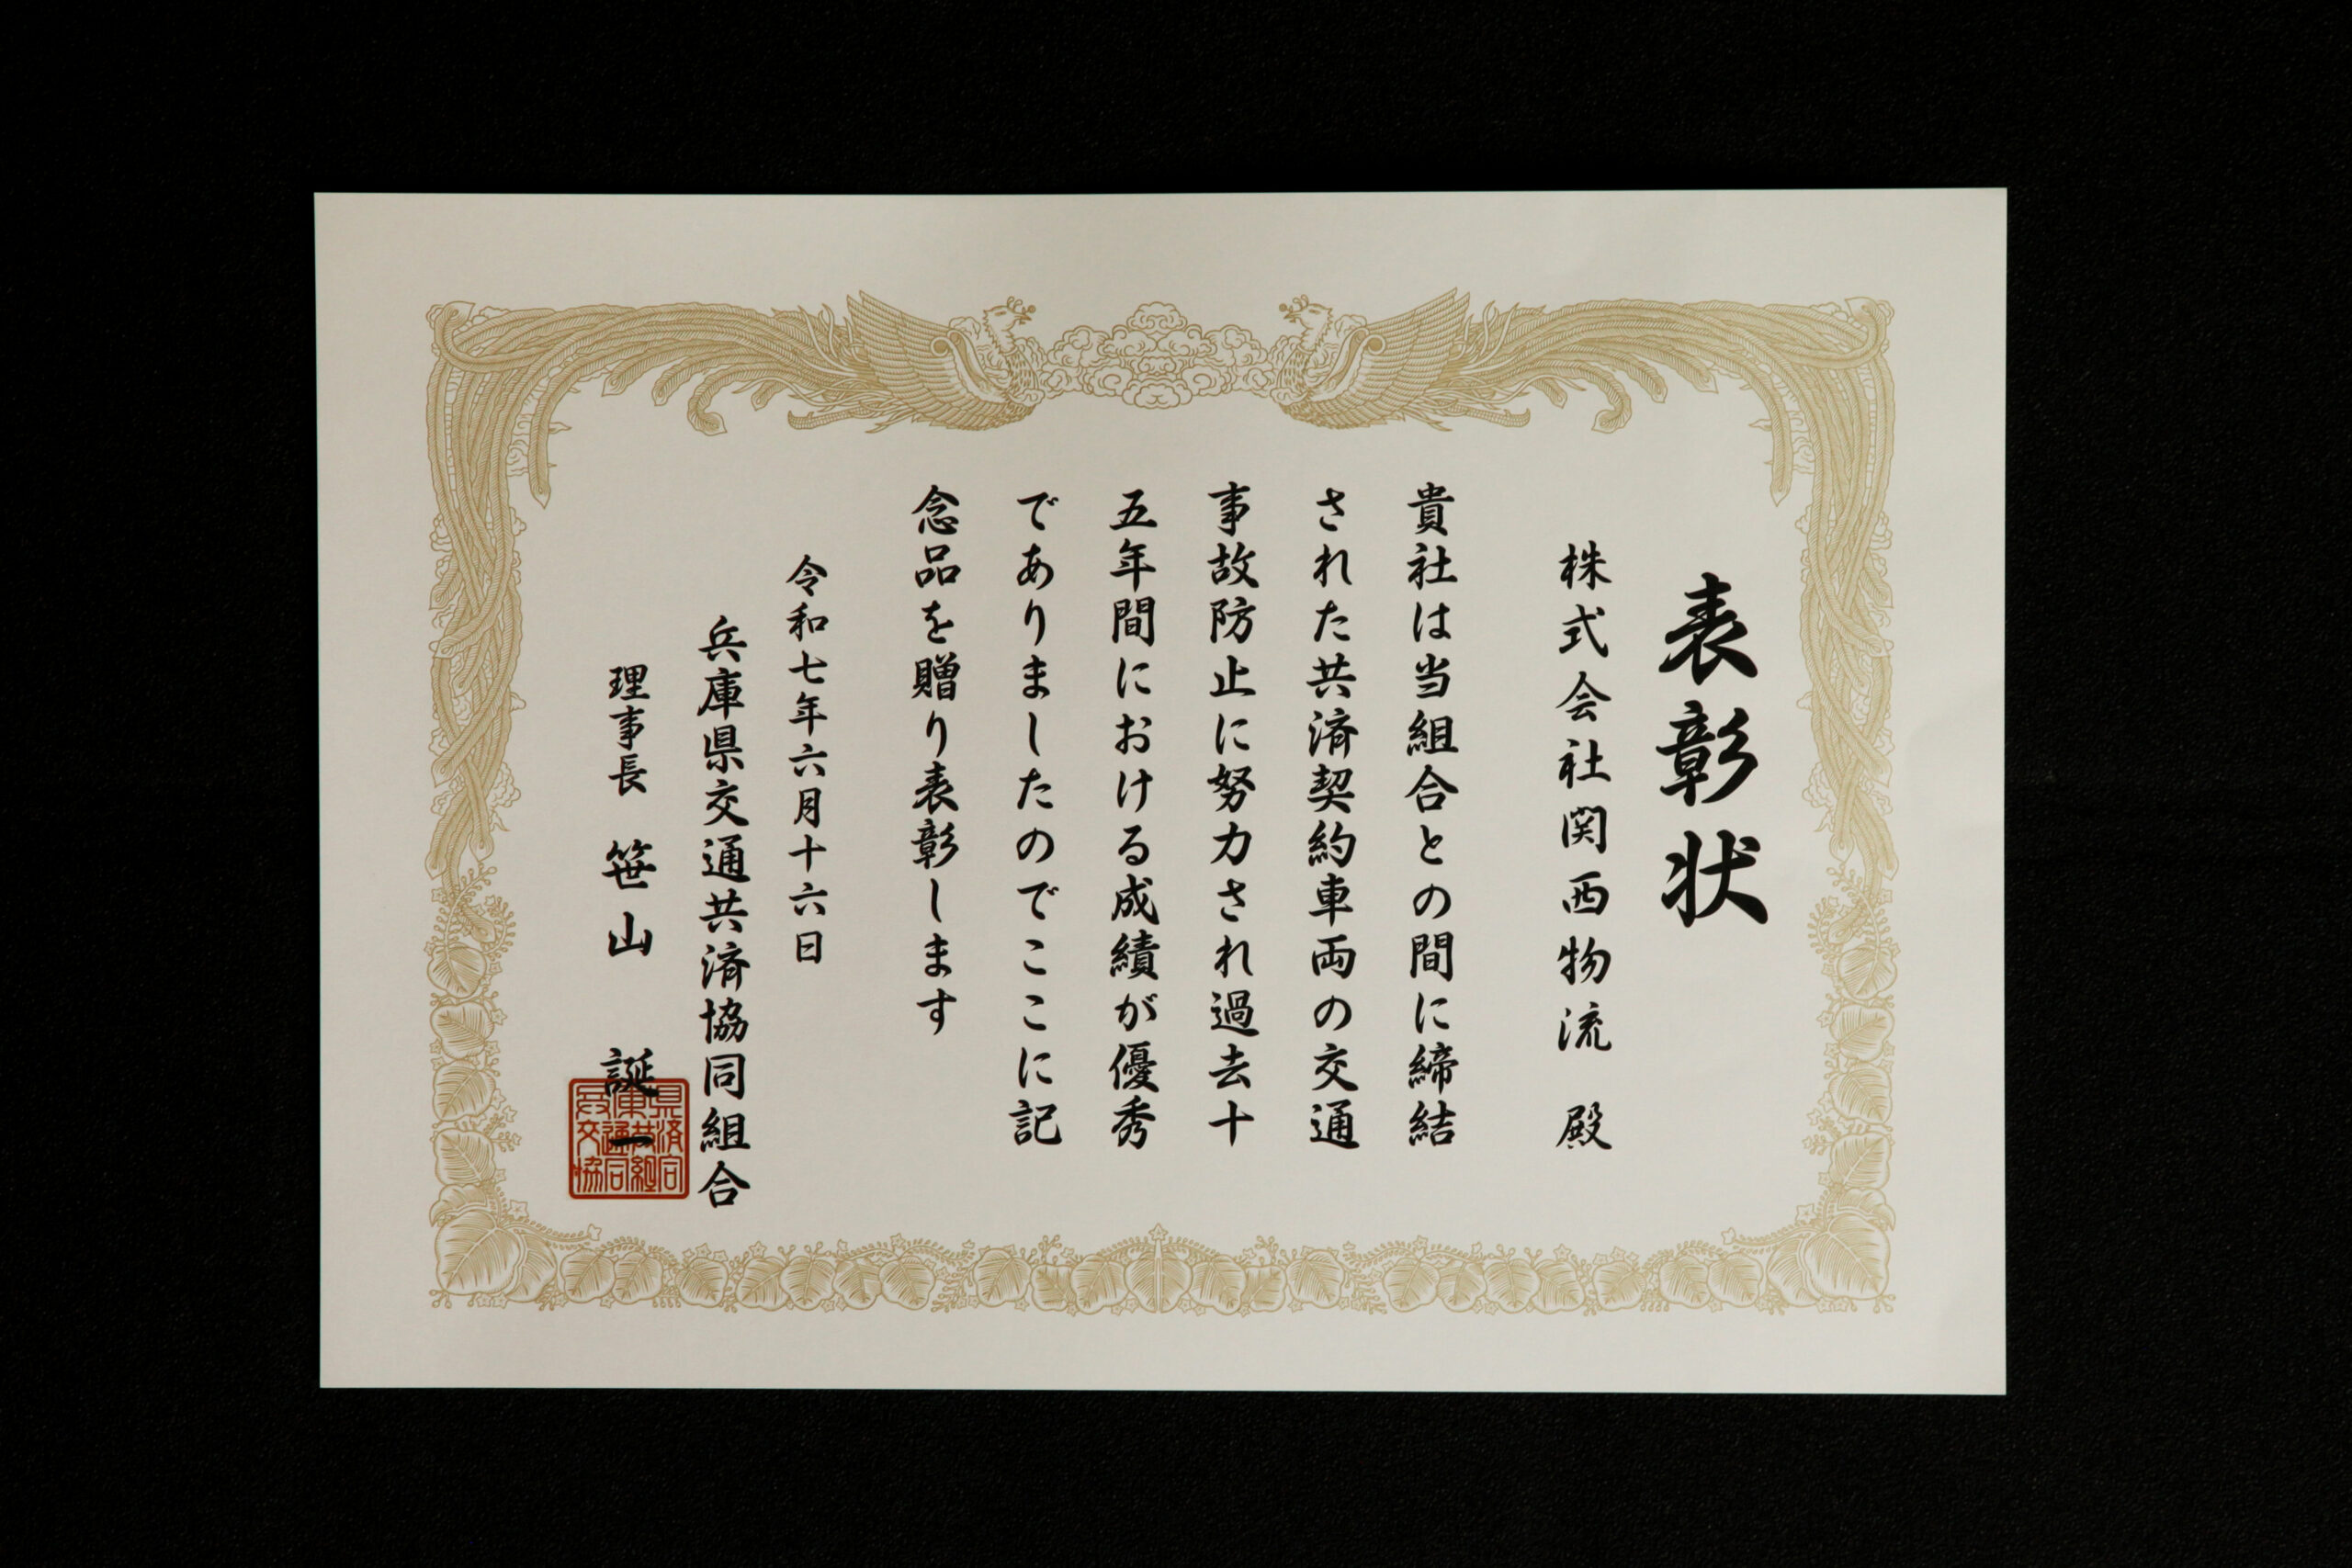 表彰状
株式会社関西物流 殿
貴社は当組合との間に締結
された共済契約車両の交通
事故防止に努力され過去十
五年間における成績が優秀
でありましたのでここに記
念品を贈り表彰します
令和七年六月十六日
兵庫県交通共済協同組合
理事長 笹山 誕一